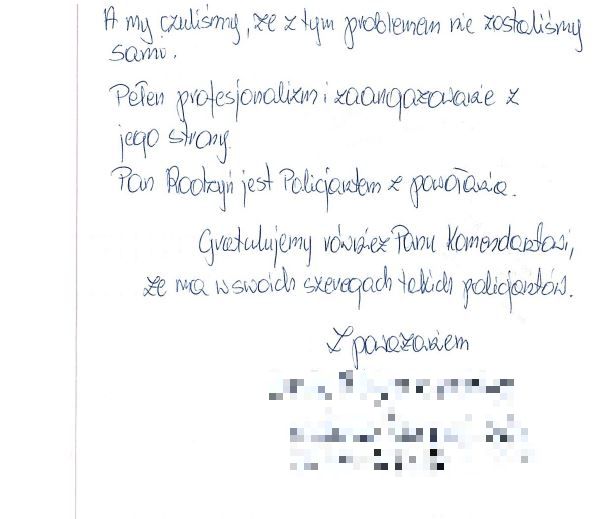 A my czuliśmy, że z tym problemem nie zostaliśmy
sami.
Pełen profesjonalizm i zaangażowanie z
jego strony.
Pan Rodzyń jest Policjantem z powołania.
Gratulujemy również Panu Komendantowi,
że ma w swoich szeregach takich policjantów.
Z poważaniem